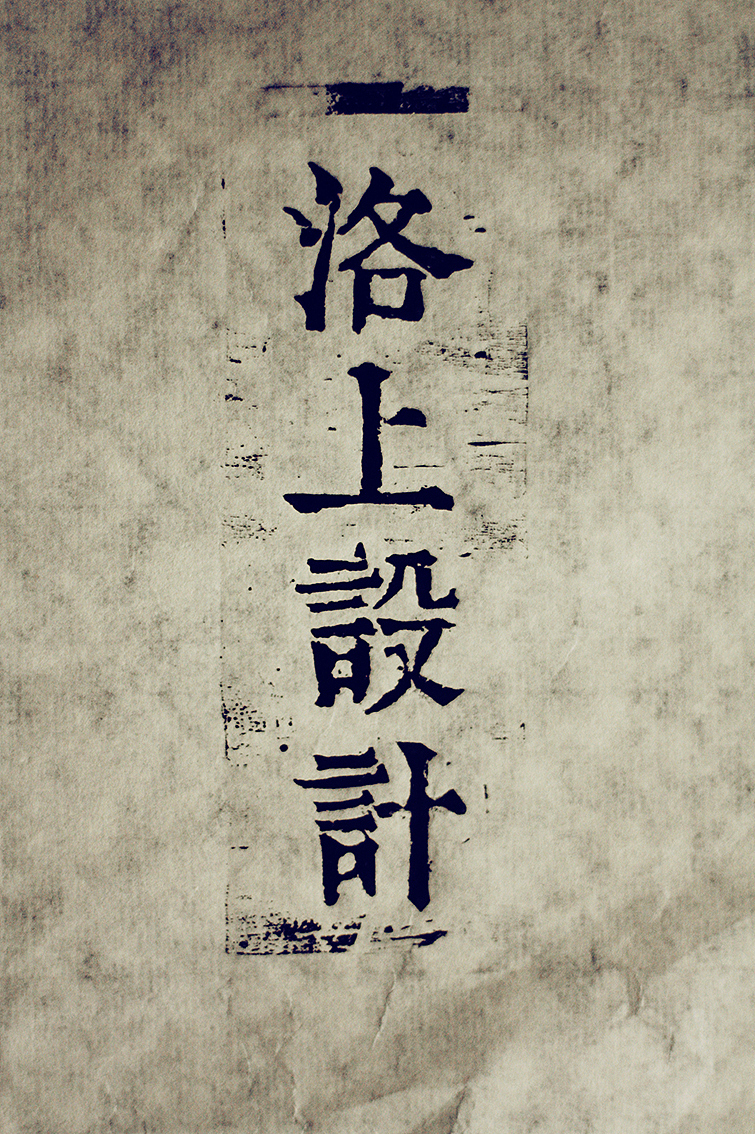 洛上設計